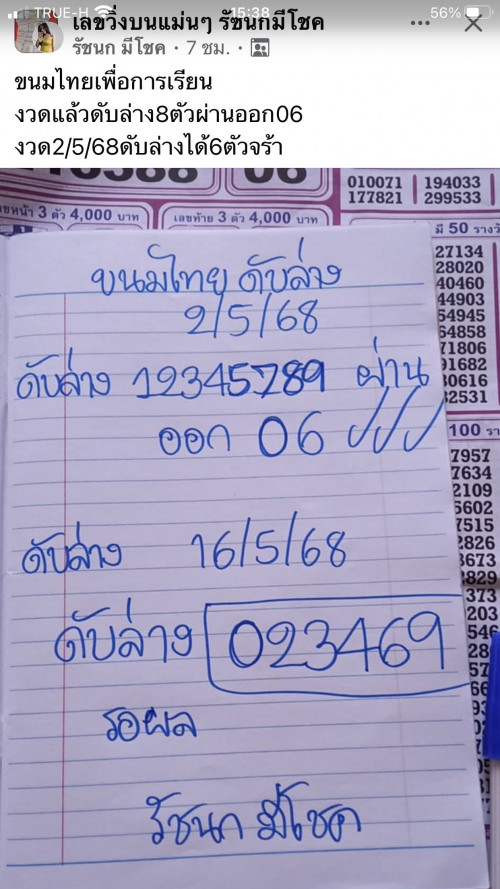 TRUE-H 15:38 56%
เลขวิ่งบนแม่นๆ รัชนกมีโชค
รัชนก มีโชค · 7 ชม. ·
ขนมไทยเพื่อการเรียน
งวดแล้วดับล่าง8ตัวผ่านออก06
งวด2/5/68ดับล่างได้6ตัวจร้า
06
010071 194033
177821 299533
เลขหน้า 3 ตัว 4,000 บาท
เลขท้าย 3 ตัว 4,000 บาท
มี 50 รางวั
27134
28020
40460
44903
54945
64858
71806
91682
80616
32531
100 รา
7957
7634
2109
5602
7515
2826
3673
3829
373
203
546
ขนมไทย ดับล่าง
2/5/68
ดับล่าง 12345789 ผ่าน
ออก 06 ///
ดับล่าง 16/5/68
ดับล่าง 023469
รอผล
รัชนก มีโชค